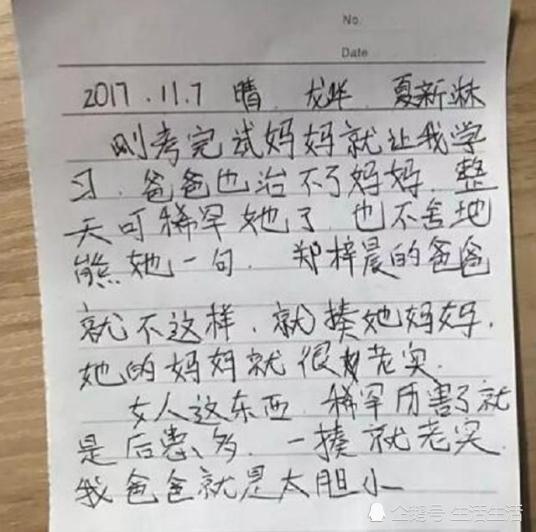 No.
Date
2017.11.7 晴 龙洋 夏新淋
刚考完试妈妈就让我学
习.爸爸也治不了妈妈.整
天可稀罕她了.也不舍地
熊她一句.郑梓晨的爸爸
就不这样.就揍她妈妈.
她的妈妈就很老实.
女人这东西 稀罕历害了就
是后患多.一揍就老实.
我爸爸就是太胆小
企鹅号 生活生活